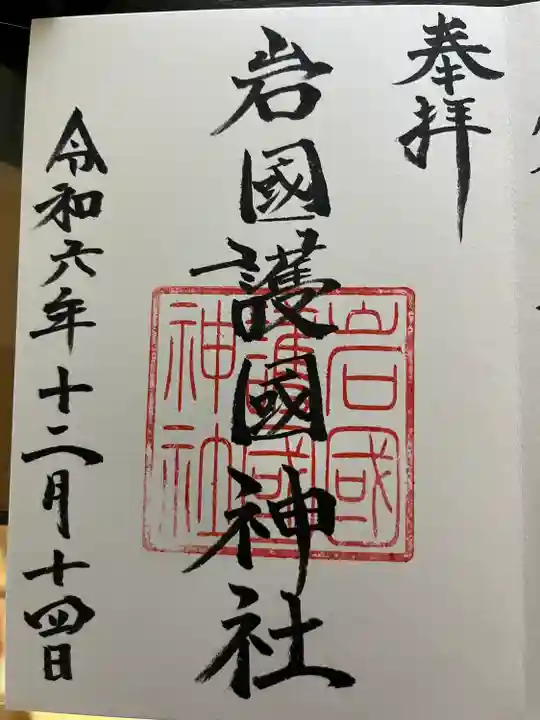 奉拝
岩國護國神社
岩國護國神社
令和六年十二月十四日